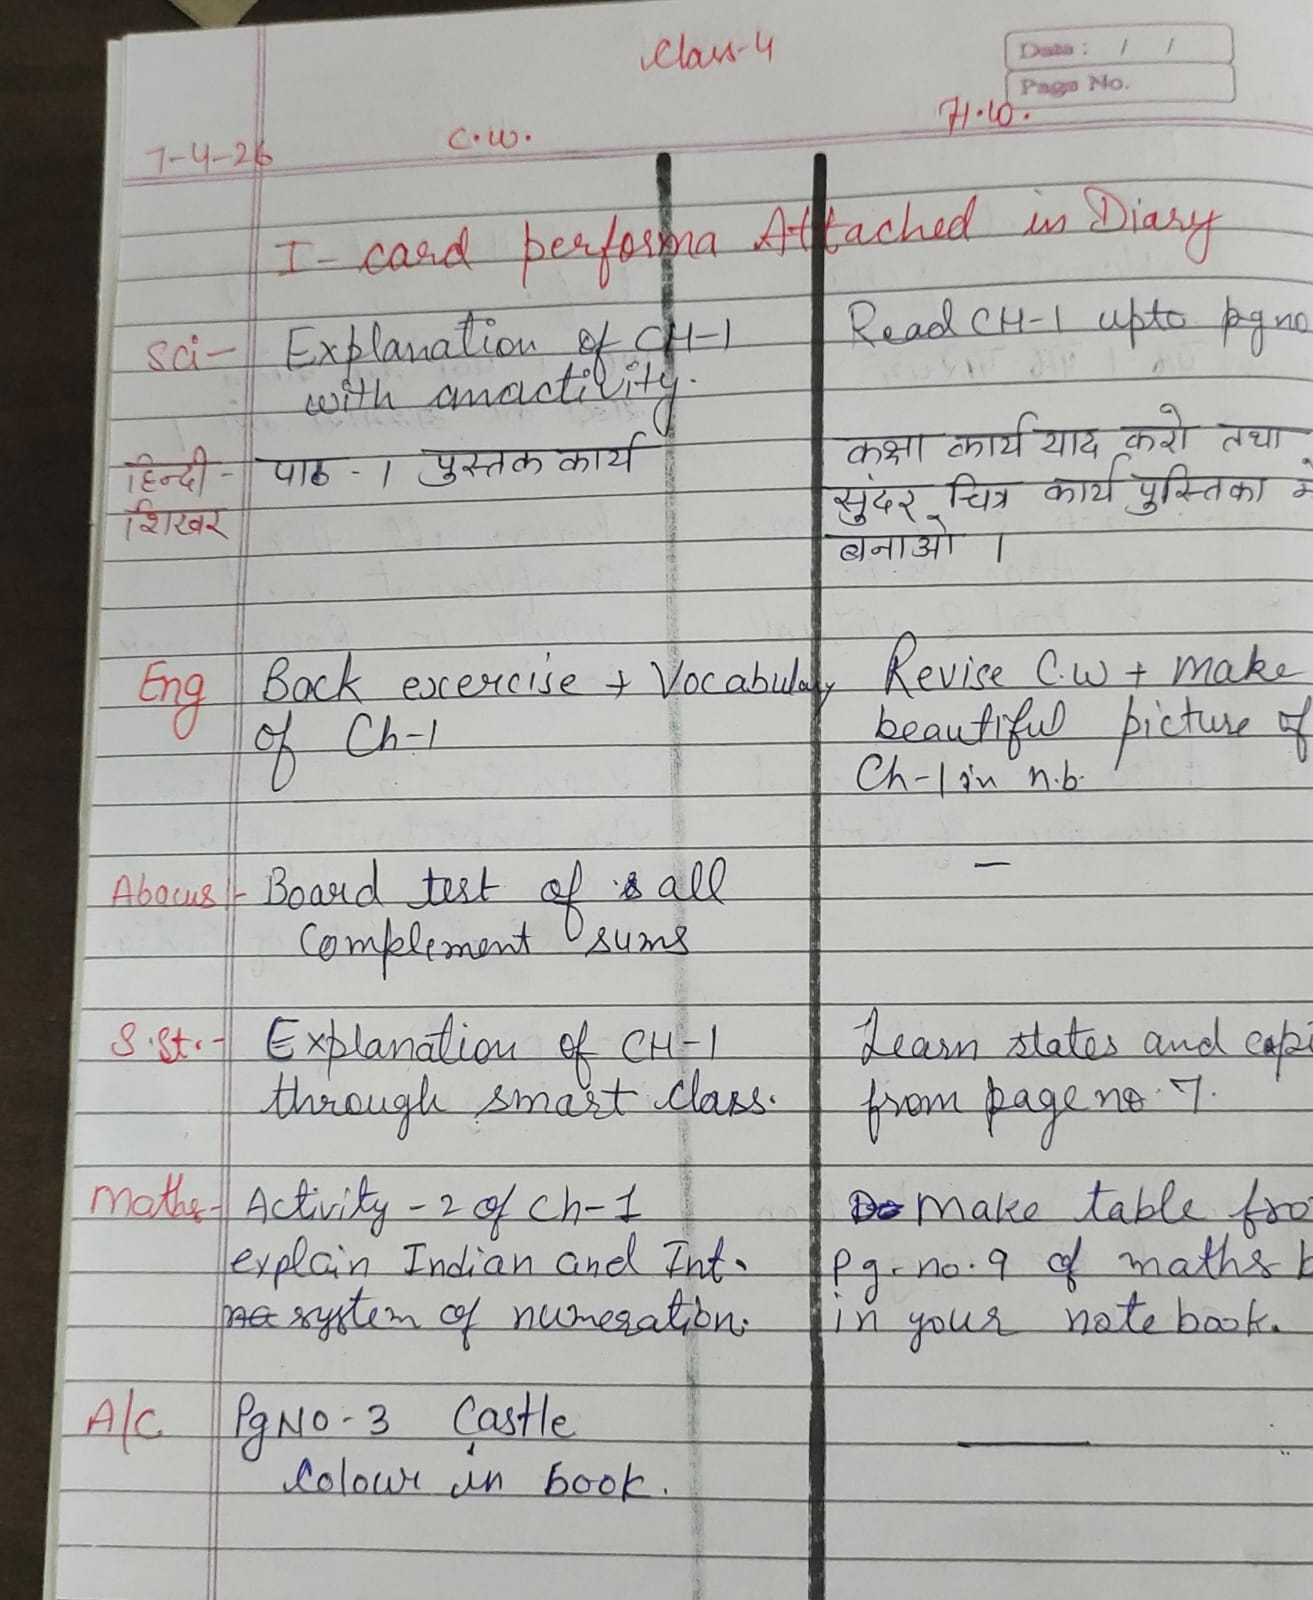 Class-4
Date: / /
Page No.
7-4-26 C.W. H.W.
I-card performa Attached in Diary
Sci- Explanation of CH-1 Read CH-1 upto pg no
with anactivity.
हिन्दी - पाठ - 1 पुस्तक कार्य कक्षा कार्य याद करो तथा
शिखर सुंदर चित्र कार्य पुस्तिका में
बनाओ ।
Eng Back excercise + Vocabulary Revise C.W + make
of Ch-1 beautiful picture of
Ch-1 in n.b.
Abacus :- Board test of all —
Complement sums
S.St.- Explanation of CH-1 Learn states and capi
through smart class. from page no 7.
Maths- Activity -2 of Ch-1 Make table fro
explain Indian and Int. Pg-no.9 of maths b
system of numeration. in your notebook.
A/C Pg NO-3 Castle —
Colour in book.